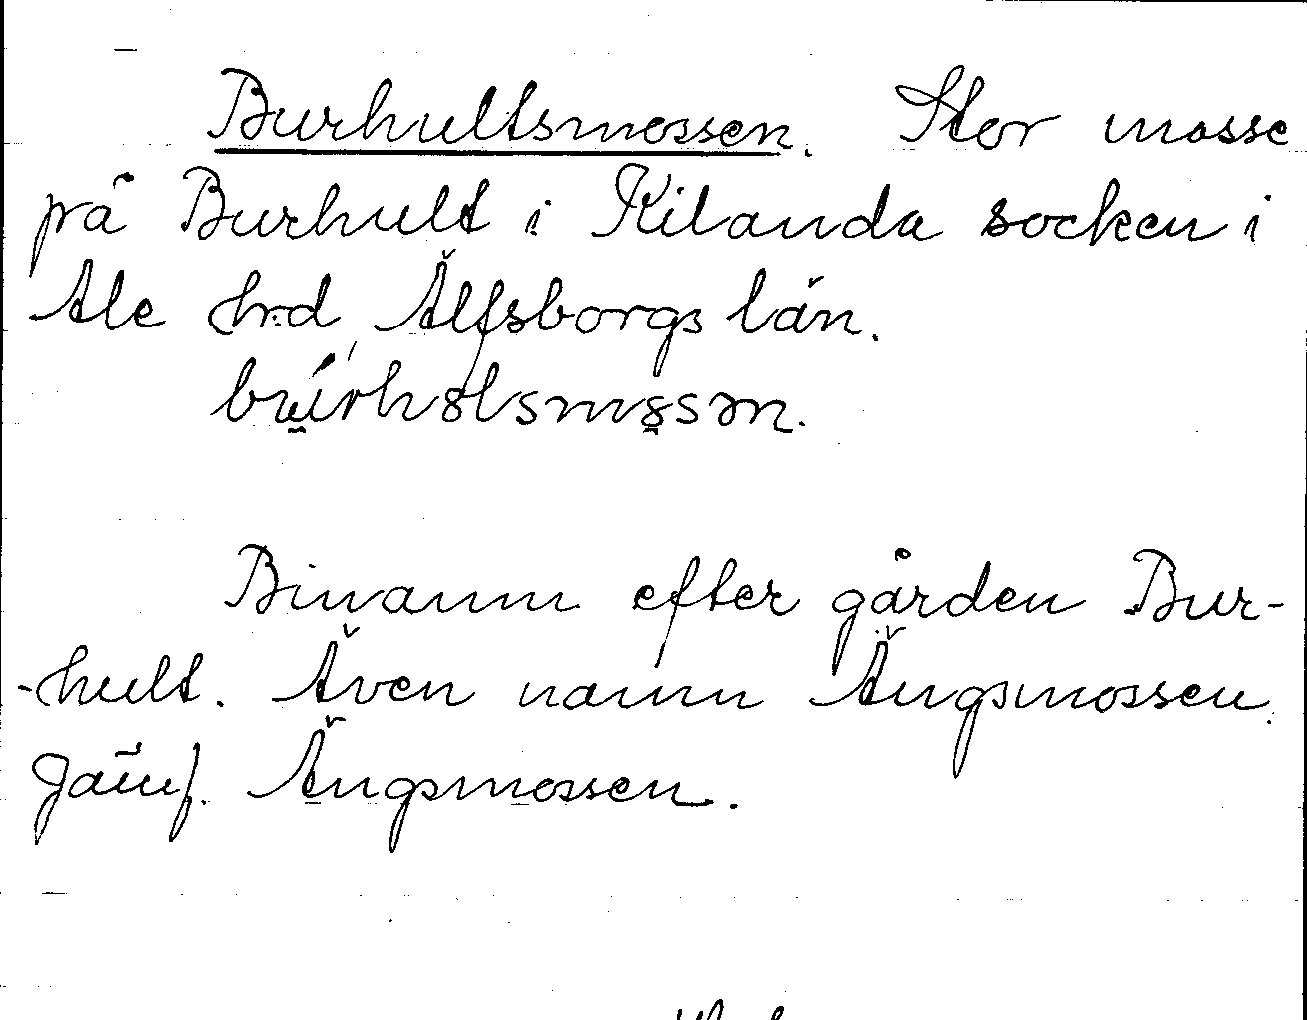 Burhultsmossen. Stor mosse
på Burhult i Kilanda socken i
Ale hrd, Älfsborgs län.
Binamn efter gården Bur-
-hult. Även namn Ängsmossen.
Jämf. Ängsmossen.